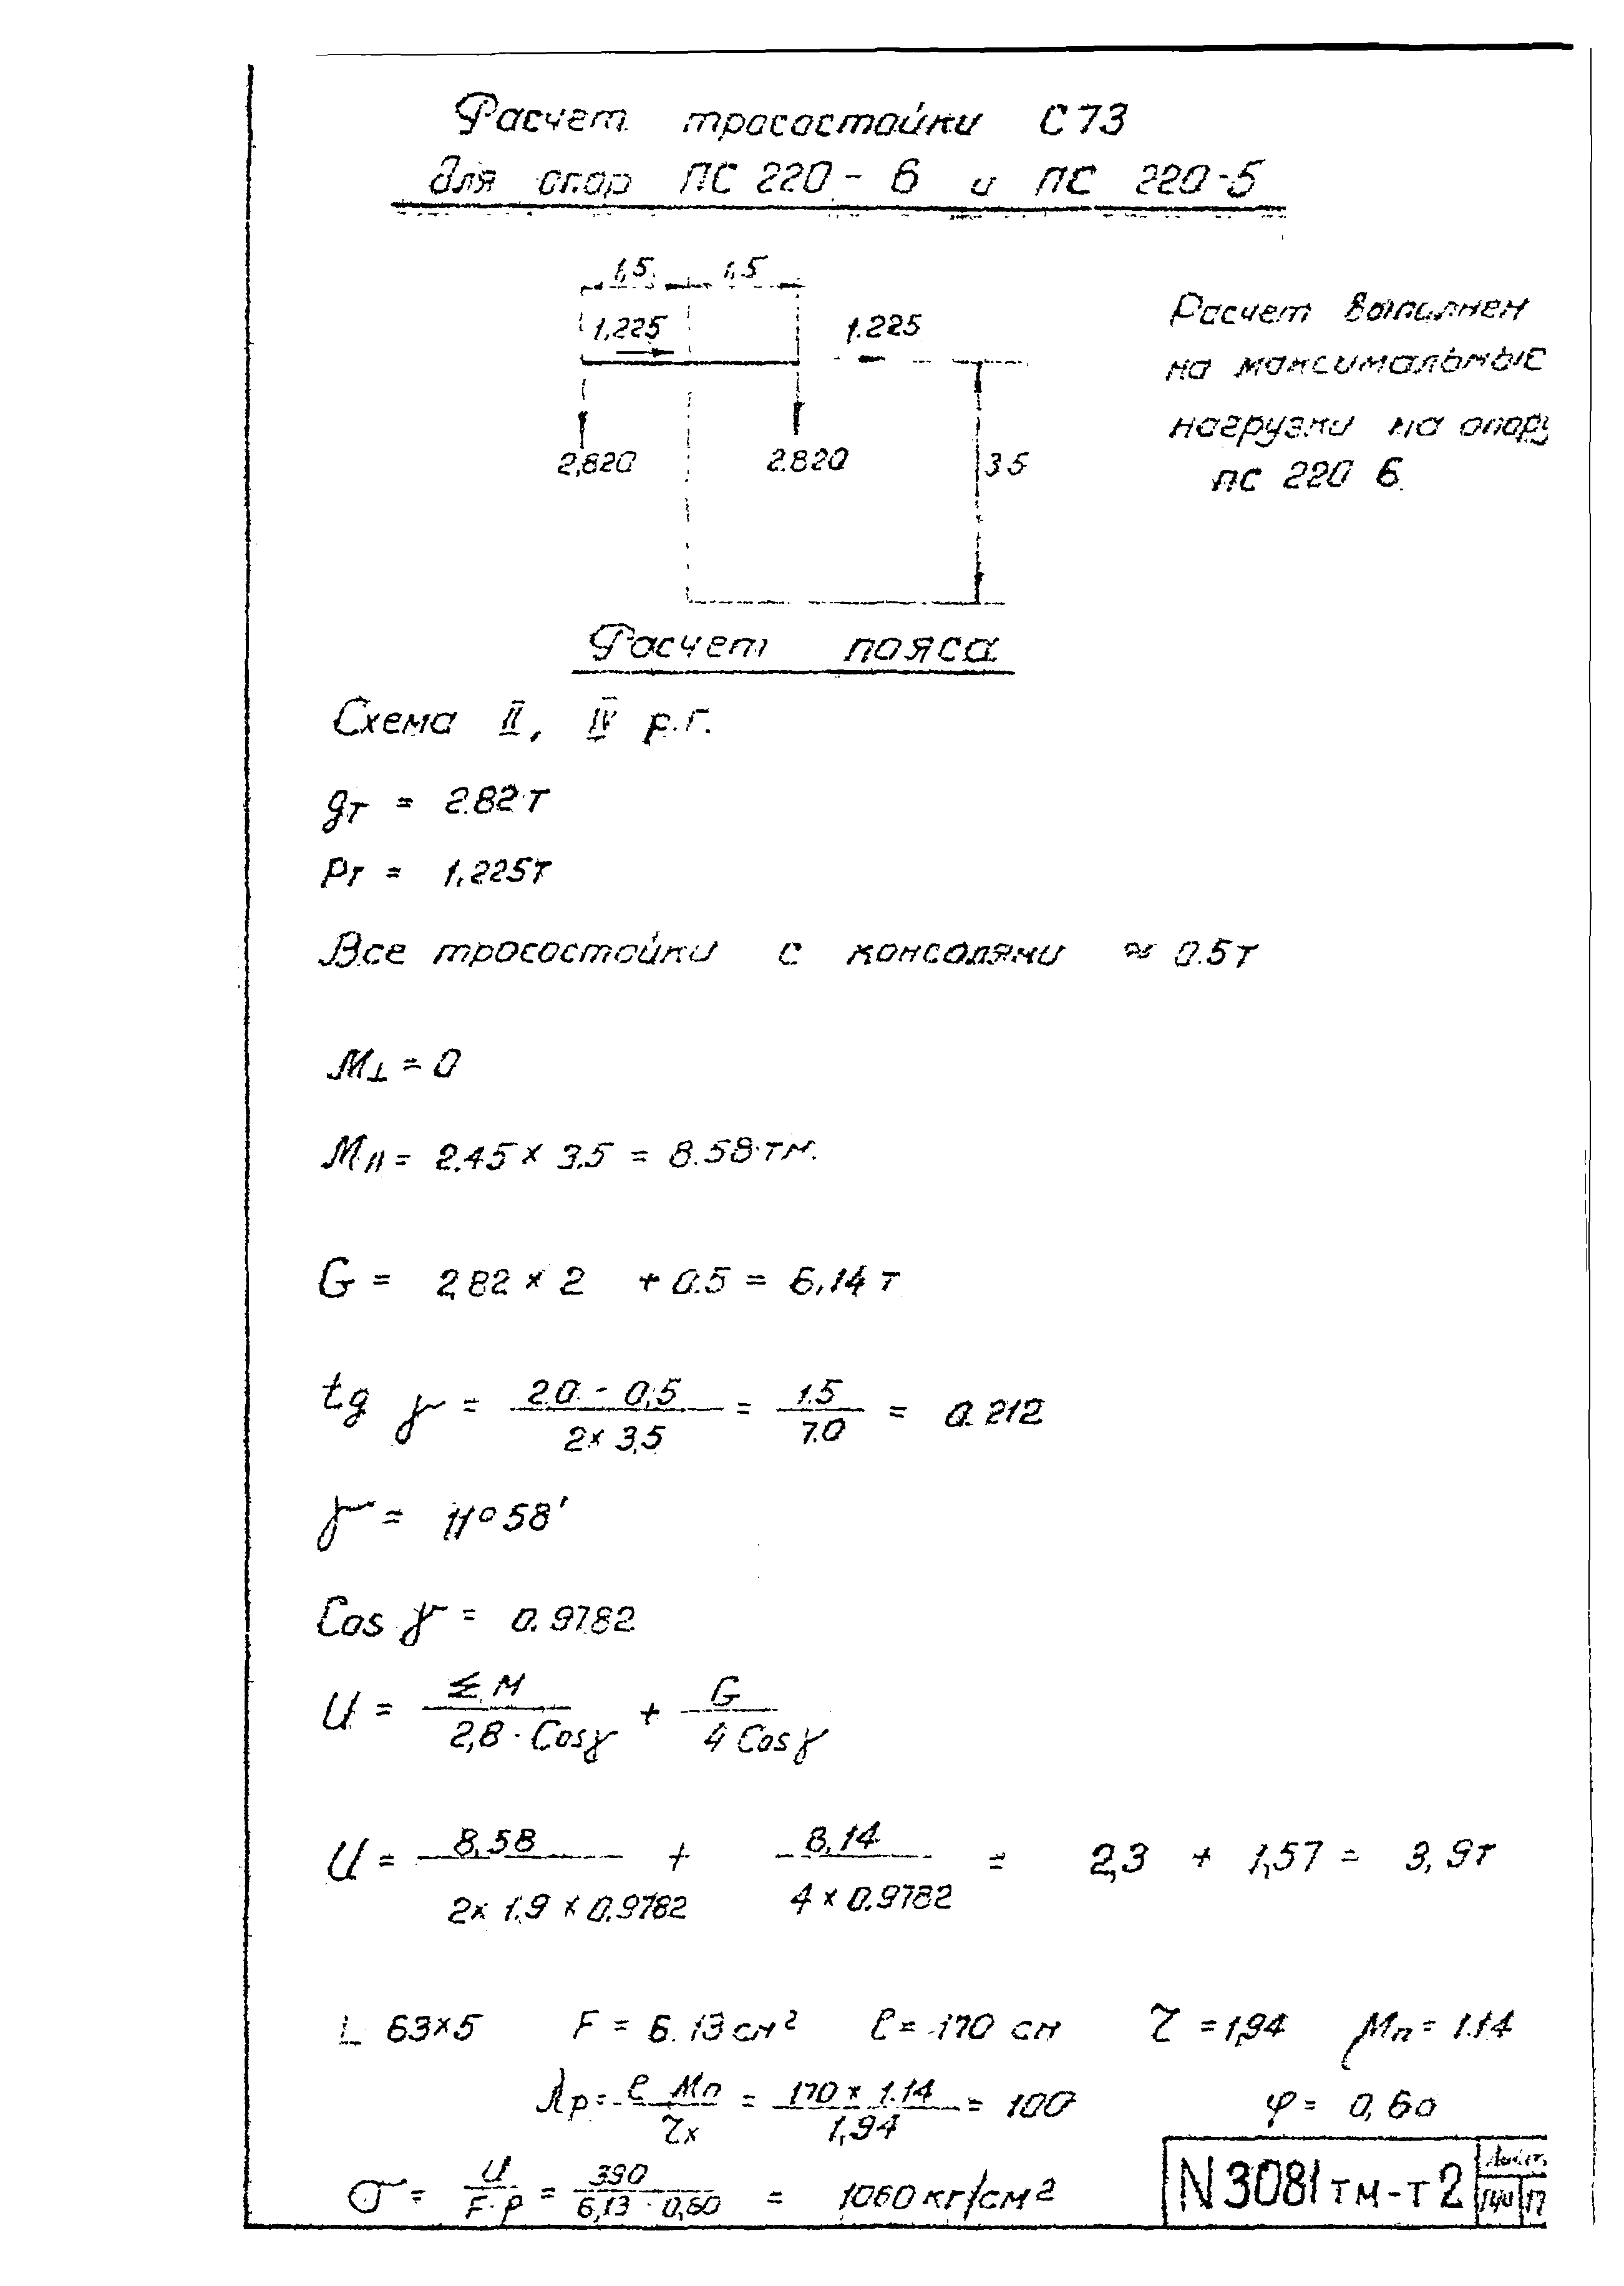 Расчет тросостойки С73
для опор ПС 220-6 и ПС 220-5
1,5 1,5
1.225 1.225
2,820 2.820 3.5
Расчет выполнен
на максимальные
нагрузки на опору
ПС 220 6.
Расчет пояса
Схема II, IV р.г.
gт = 2.82т
Pт = 1,225т
Все тросостойки с консолями ≈ 0.5т
M⊥ = 0
M॥ = 2.45 × 3.5 = 8.58 тм.
G = 2,82 × 2 + 0.5 = 6,14 т
tg γ = (2.0 - 0,5)/(2× 3,5) = 1.5/7.0 = 0.212
γ = 11°58'
Cos γ = 0.9782
U = ΣM/(2,8 · Cosγ) + G/(4 Cosγ)
U = 8,58/(2× 1.9 × 0.9782) + 6,14/(4 × 0.9782) = 2,3 + 1,57 = 3,9т
L 63×5 F = 6.13 см² ℓ = 170 см τ = 1,94 μп = 1.14
λp = ℓ Mп/τx = 170 × 1.14/1,94 = 100 φ = 0,60
σ = U/F·φ = 390/6,13 · 0,60 = 1060 кг/см²
N3081тм-т2
Лист
17